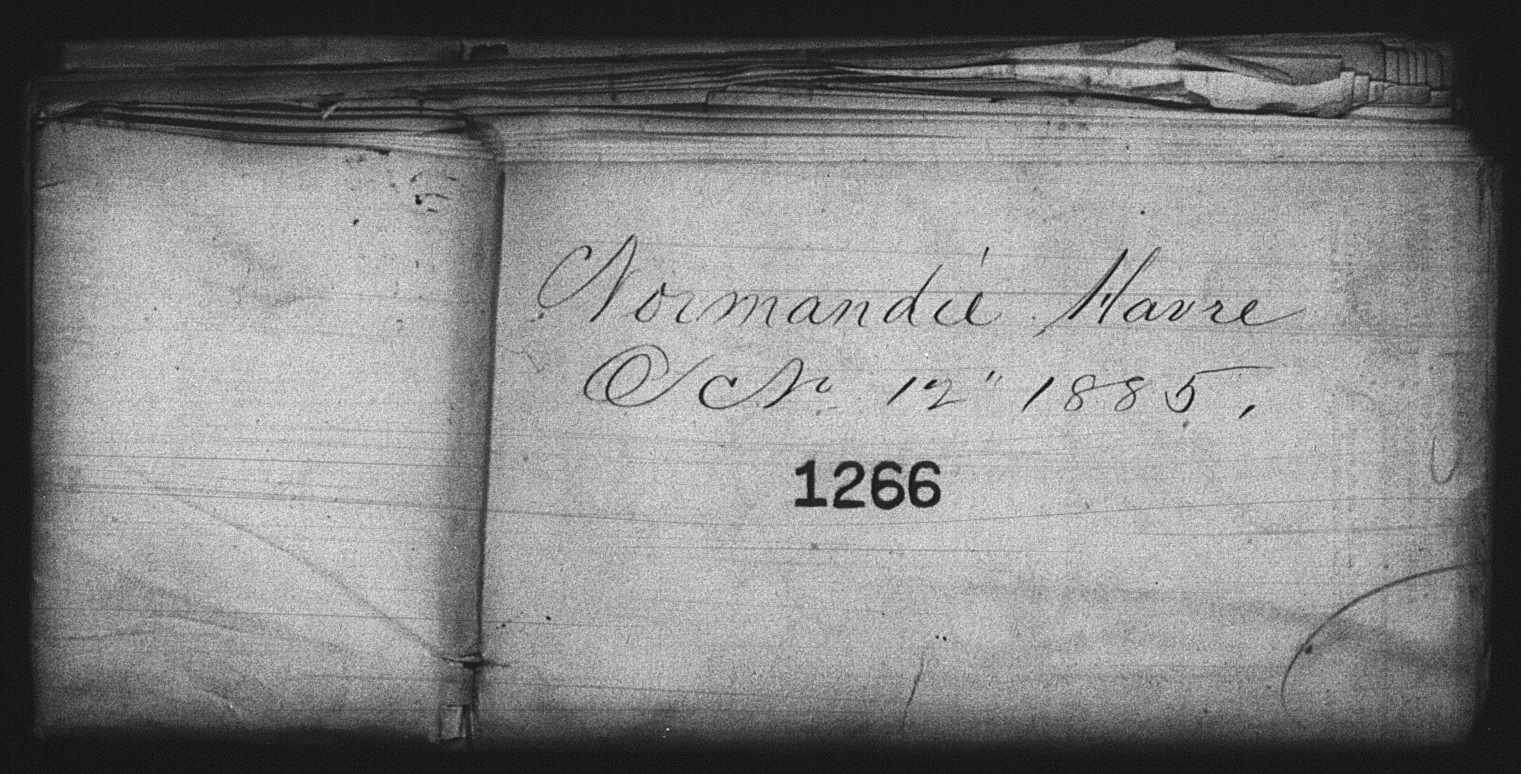 Normandie Havre
Oct 12" 1885,
1266